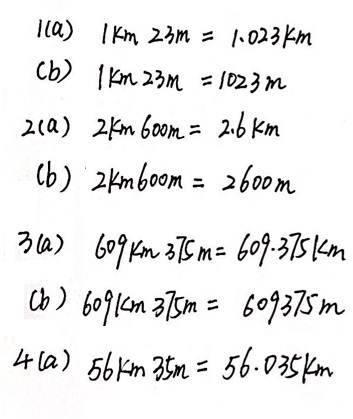 1(a) 1km 23m = 1.023km
(b) 1km 23m = 1023m
2(a) 2km 600m = 2.6km
(b) 2km 600m = 2600m
3(a) 609km 375m = 609.375km
(b) 609km 375m = 609375m
4(a) 56km 35m = 56.035km